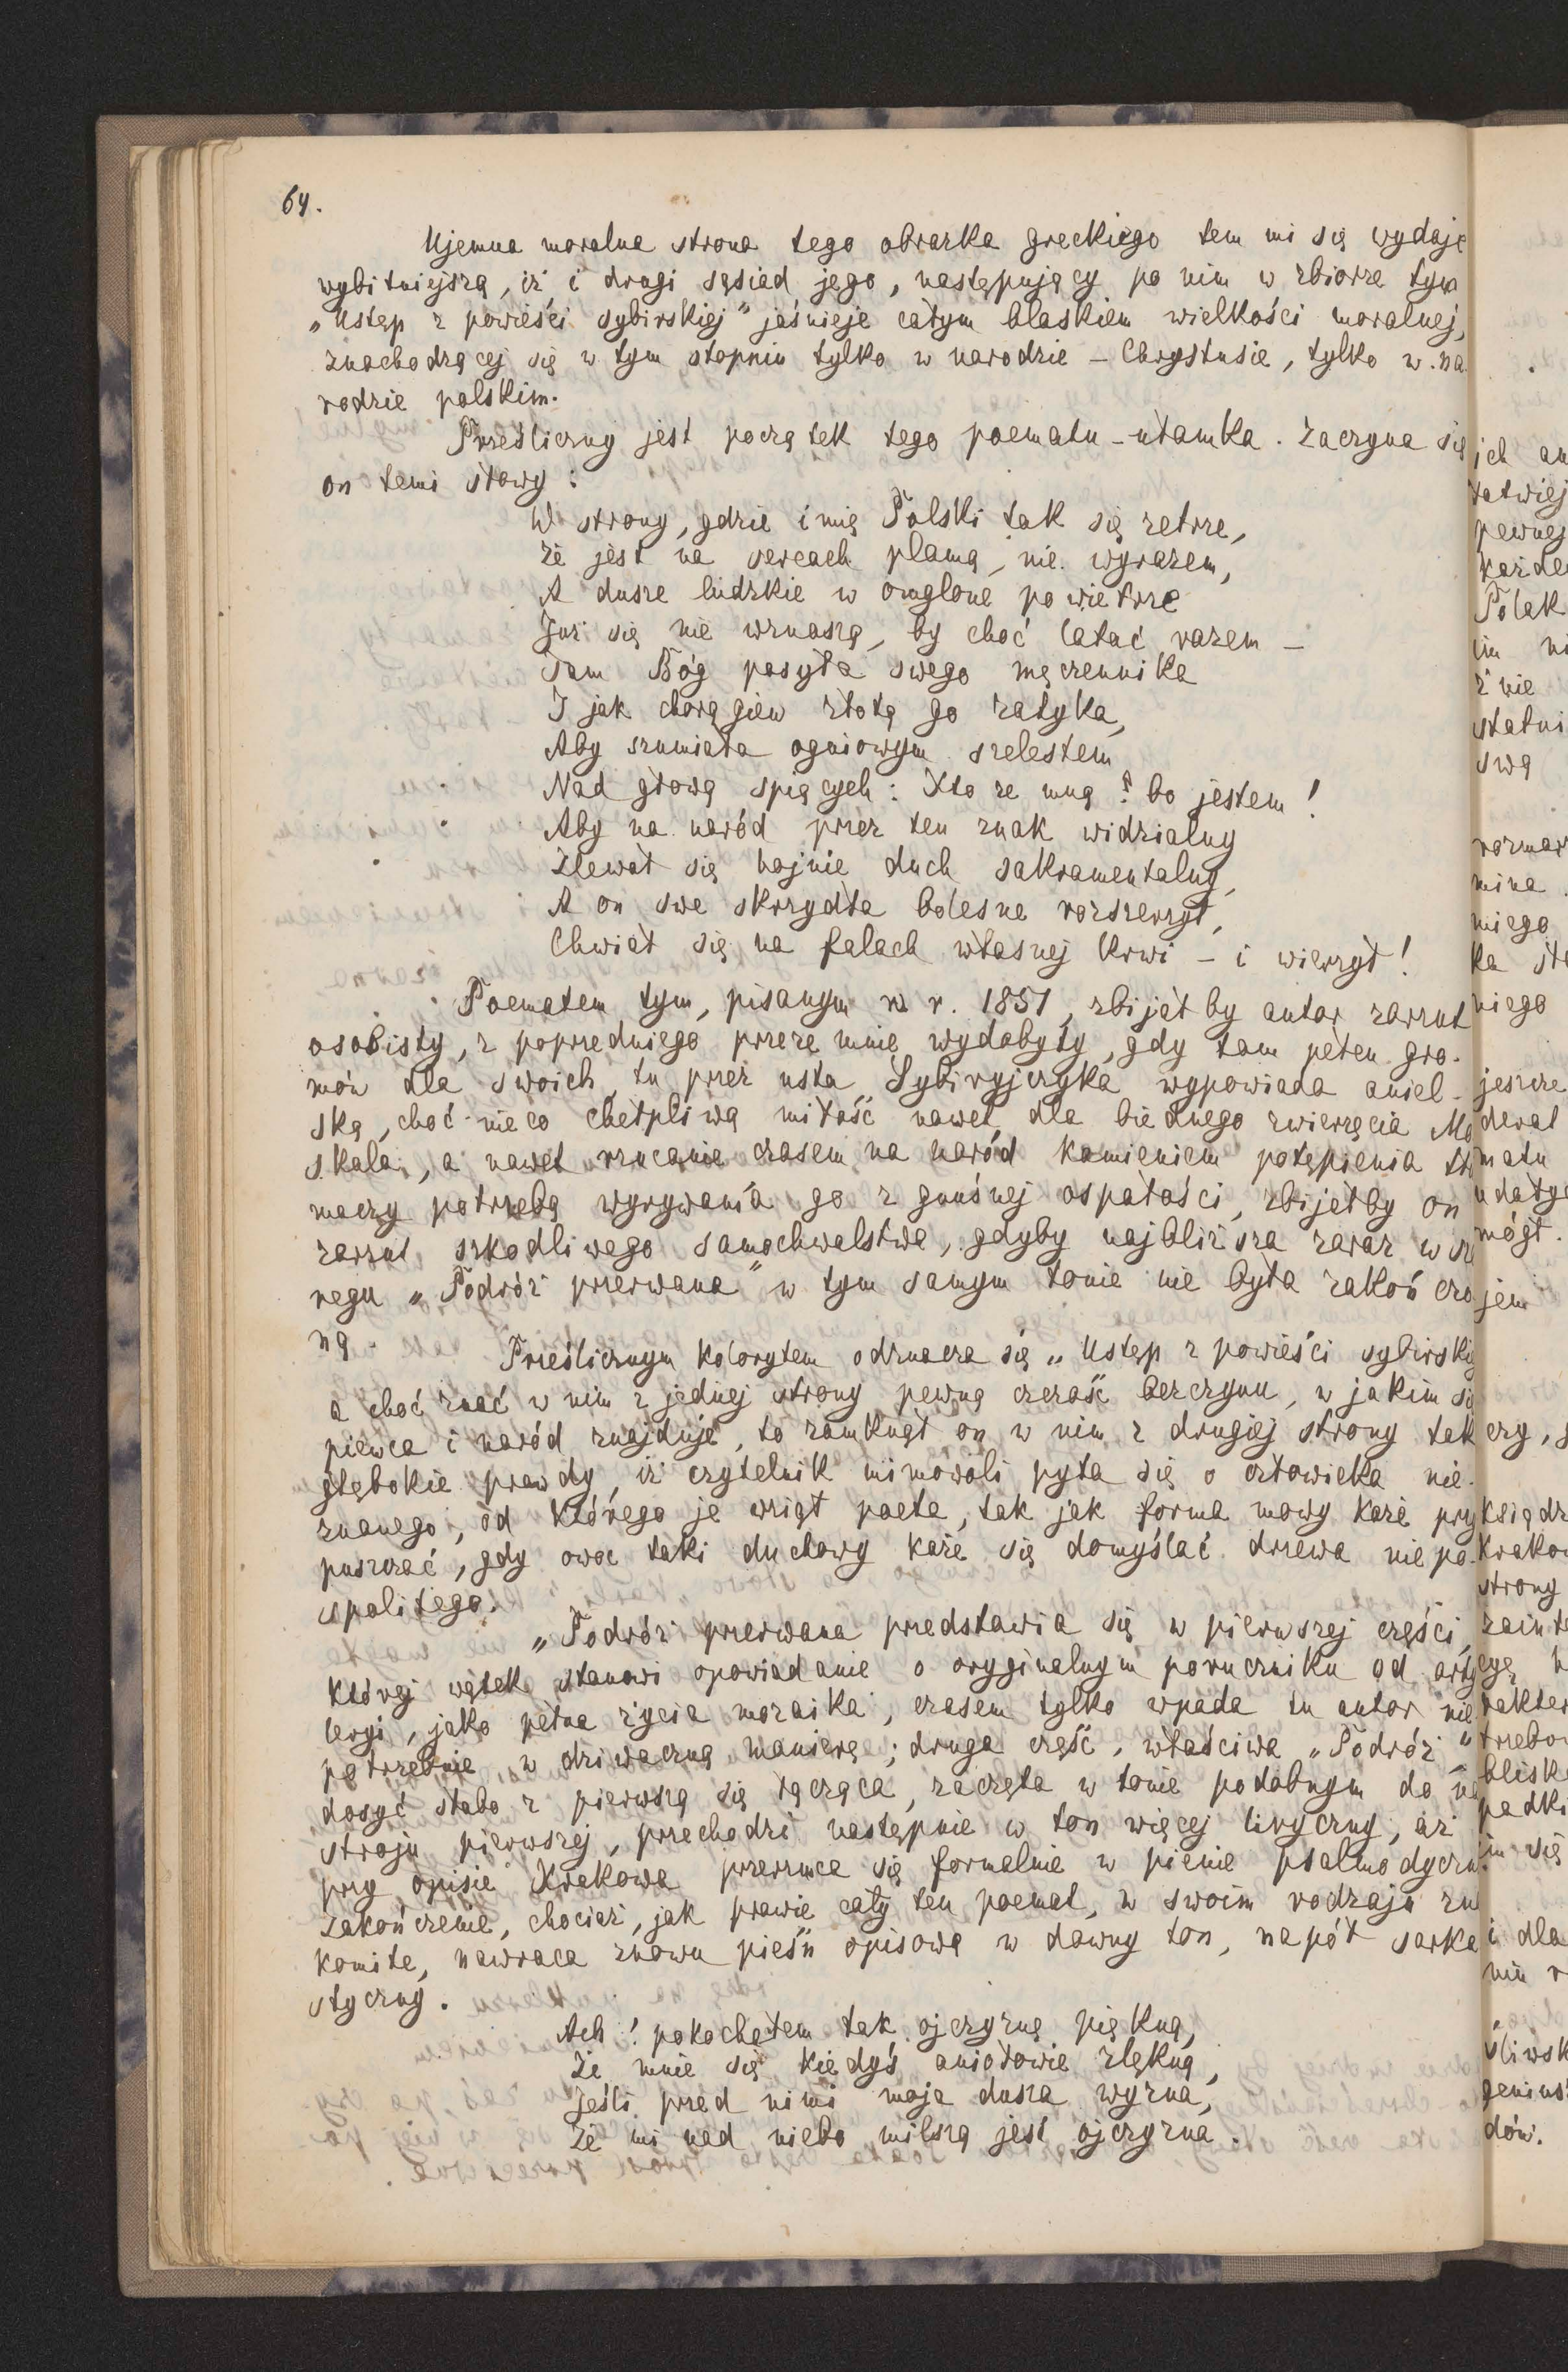 64.
Ujemna moralna strona tego obrazka greckiego tem mi się wydaje
wybitniejszą, iż i drugi sąsiad jego, następujący po nim w zbiorze tym
„Ustęp z powieści sybirskiej" jaśnieje całym blaskiem wielkości moralnej,
znachodzącej się w tym stopniu tylko w narodzie – Chrystusie, tylko w na
rodzie polskim.
Prześliczny jest początek tego poematu – ułamka. Zaczyna się
on temi słowy:
W strony, gdzie imię Polski tak się zetrze,
Że jest na sercach plamą, nie wyrazem,
A dusze ludzkie w omglone powietrze
Już się nie wznoszą, by choć latać razem –
Tam Bóg posyła swego męczennika
I jak chorągiew złotą go zatyka,
Aby szumiała ogniowym szelestem
Nad głową spiących: Kto ze mną? bo jestem!
Aby na naród przez ten znak widzialny
Zlewał się hojnie duch sakramentalny,
A on swe skrzydła bolesne rozszerzył,
Chwiał się na falach własnej krwi – i wierzył!
Poematem tym, pisanym w r. 1851, zbijałby autor zarzut
osobisty, z poprzedniego przeze mnie wydobyty, gdy tam pełen gro-
mów dla swoich, tu przez usta Sybiryjczyka wypowiada aniel-
ską, choć nieco chełpliwą miłość nawet dla biednego zwierzęcia Mo
skala, a nawet rzucanie czasem na naród kamieniem potępienia tłó
maczy potrzebą wyrywania go z gnuśnej ospałości, zbijałby on
zarzut szkodliwego samochwalstwa, gdyby najbliższa zaraz w sze
regu „Podróż przerwana" w tym samym tonie nie była zakończo
ną.
Prześlicznym kolorytem odznacza się „Ustęp z powieści sybirskiej
a choć znać w nim z jednej strony pewną czczość bezczynu, w jakim się
piewca i naród znajduje, to zamknął on w nim z drugiej strony tak
głębokie prawdy, iż czytelnik mimowoli pyta się o człowieka nie-
znanego, od którego je wziął poeta, tak jak forma mowy każe przy
puszczać, gdy owoc taki duchowy każe się domyślać drzewa niepo-
spolitego.
„Podróż przerwana" przedstawia się w pierwszej części,
której wątek stanowi opowiadanie o oryginalnym poruczniku od arty
leryi, jako pełna życia mozaika, czasem tylko wpada tu autor nie
potrzebnie w dziwaczną manierę; druga część, właściwa „Podróż"
dosyć słabo z pierwszą się łącząca, zaczęta w tonie podobnym do na
stroju pierwszej, przechodzi następnie w ton więcej liryczny, aż
przy opisie Krakowa przerzuca się formalnie w pienie psalmodyczne.
Zakończenie, chociaż, jak prawie cały ten poemat, w swoim rodzaju zna
komite, nawraca znowu pieśń opisową w dawny ton, napół sarka
styczny.
Ach! pokochałem tak ojczyznę piękną,
Że mnie się kiedyś aniołowie zlękną,
Jeśli przed nimi moja dusza wyzna,
Że mi nad niebo milszą jest ojczyzna.